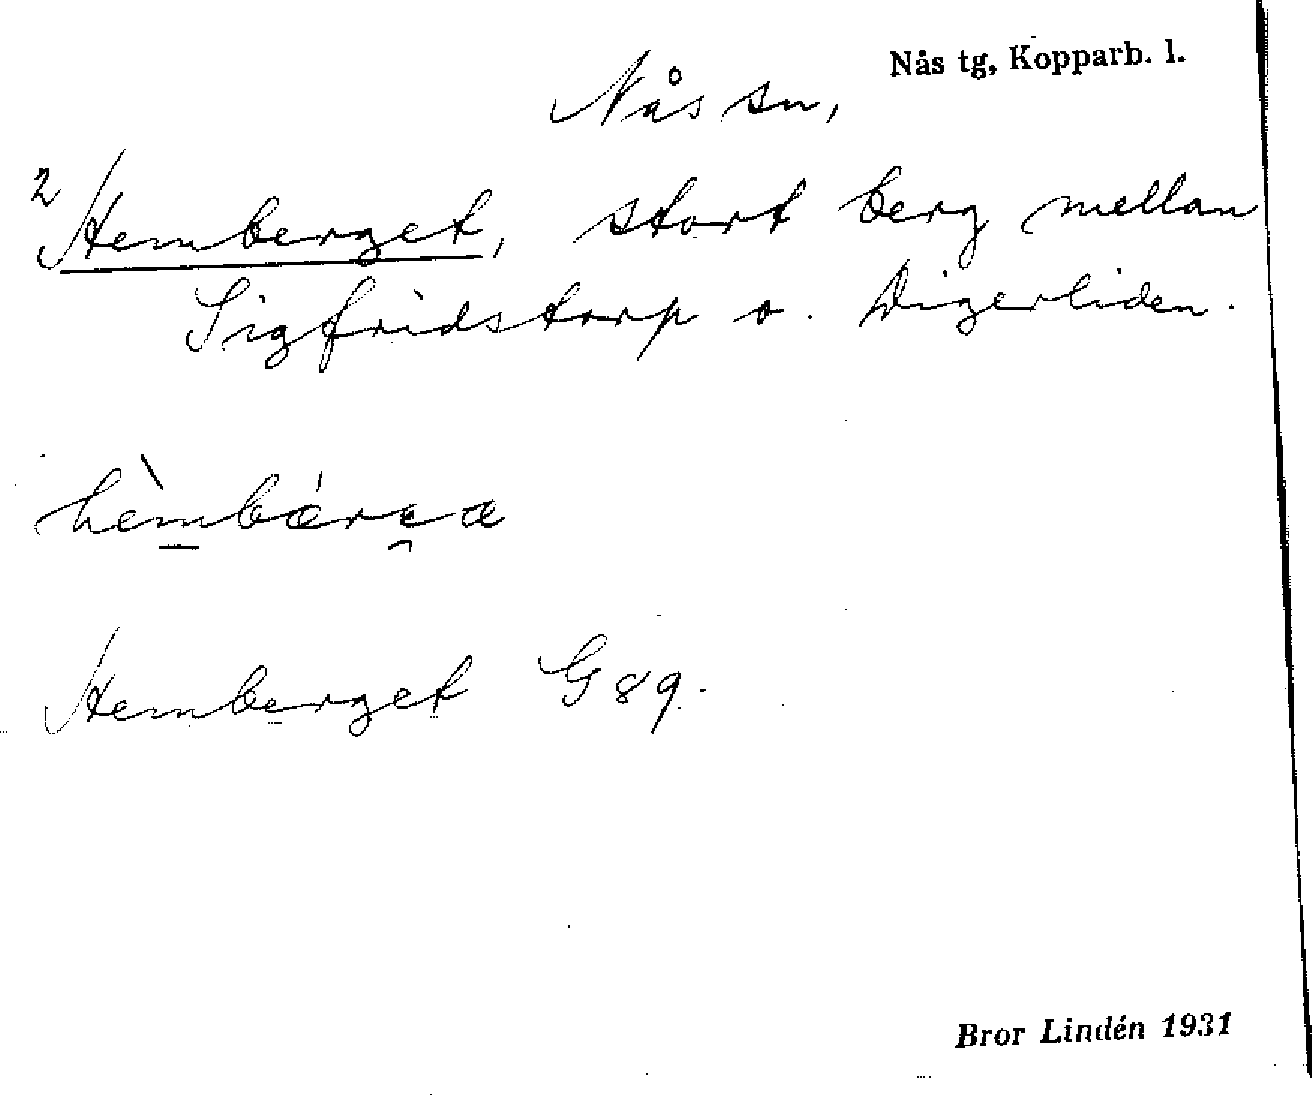 Nås tg, Kopparb. l.
Nås sn,
2 Hemberget, stort berg mellan
Sigfridstorp o. Digerliden.
Hemberget G 89.
Bror Lindén 1931